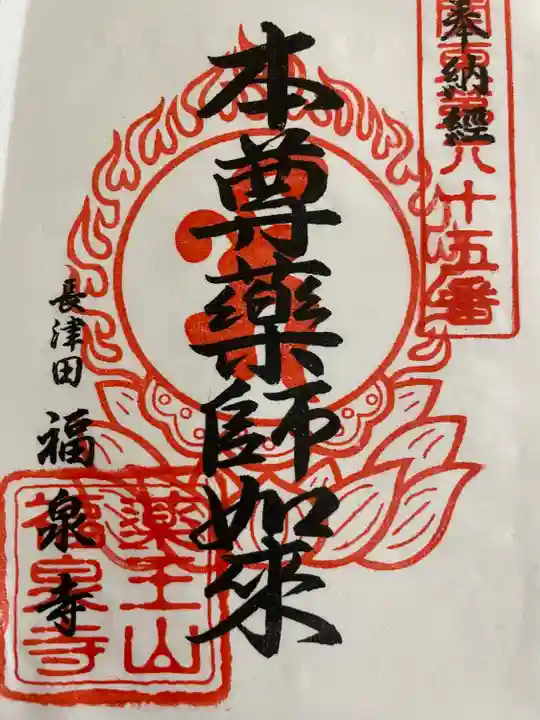 奉納經
八十五番
本尊藥師如來
長津田
福泉寺
藥王山
福泉寺